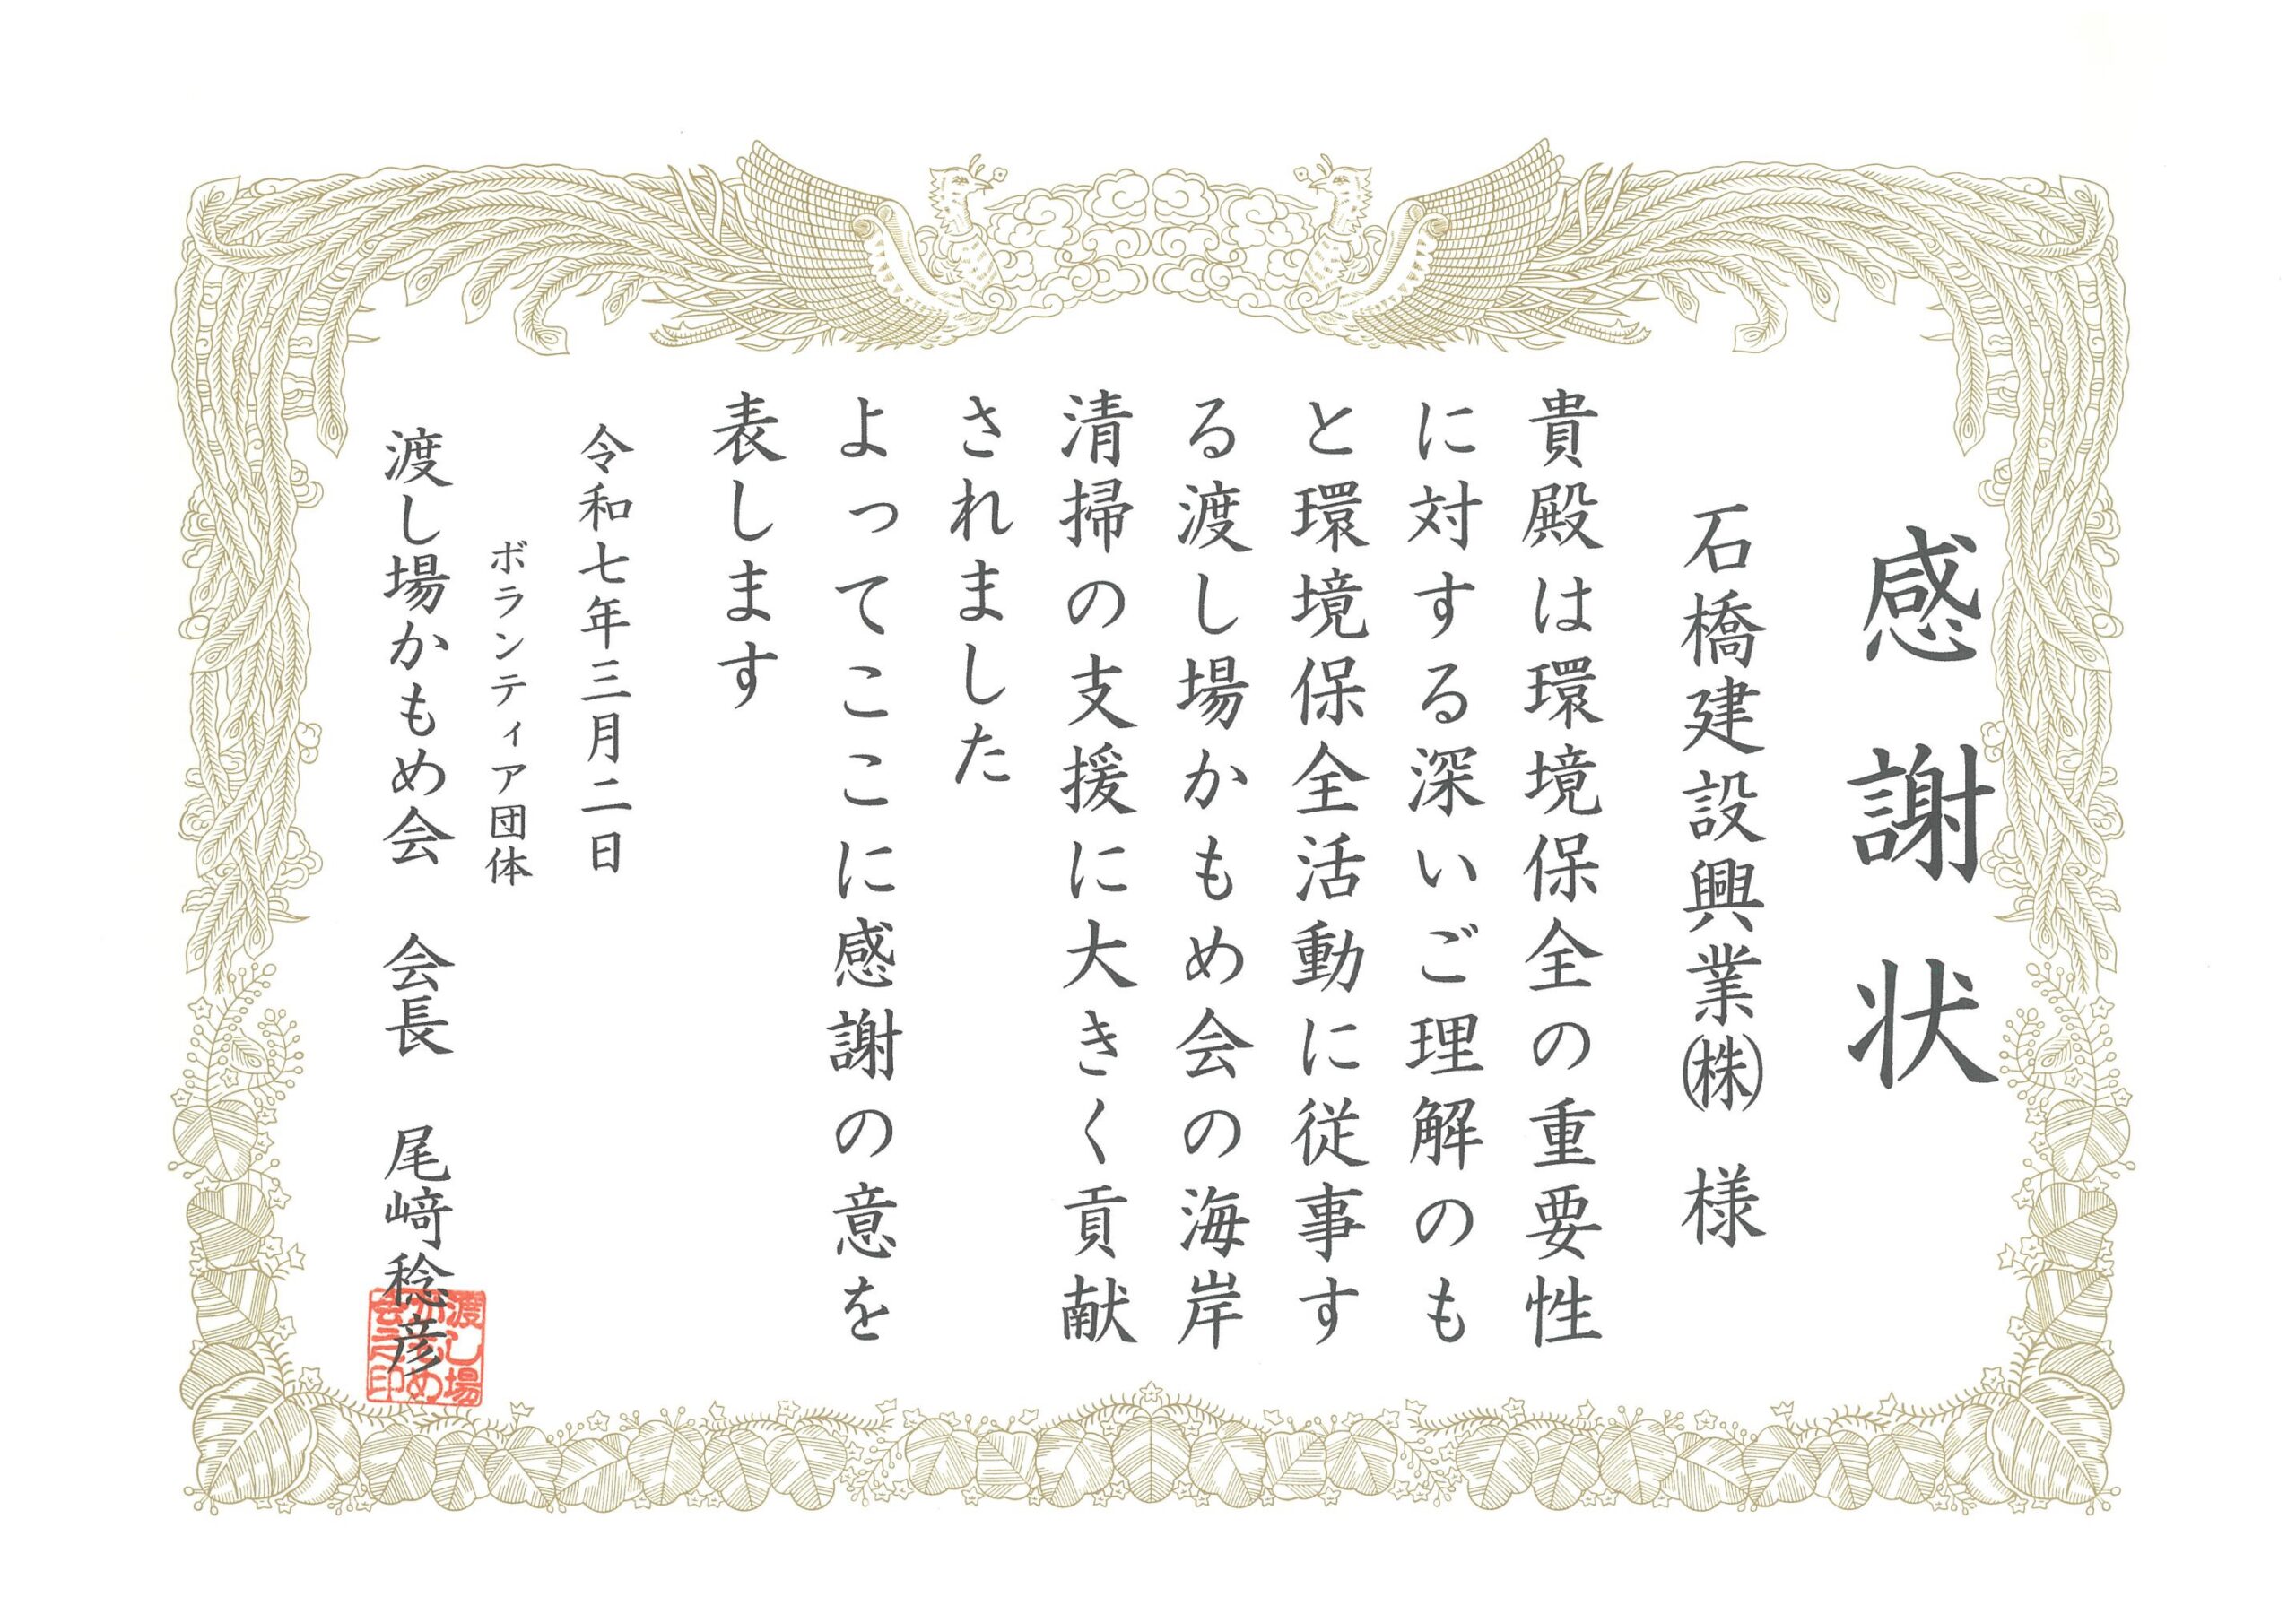 感謝状
石橋建設興業㈱ 様
貴殿は環境保全の重要性
に対する深いご理解のも
と環境保全活動に従事す
る渡し場かもめ会の海岸
清掃の支援に大きく貢献
されました
よってここに感謝の意を
表します
令和七年三月二日
ボランティア団体
渡し場かもめ会 会長 尾﨑稔彦
渡し場
かもめ
会之印